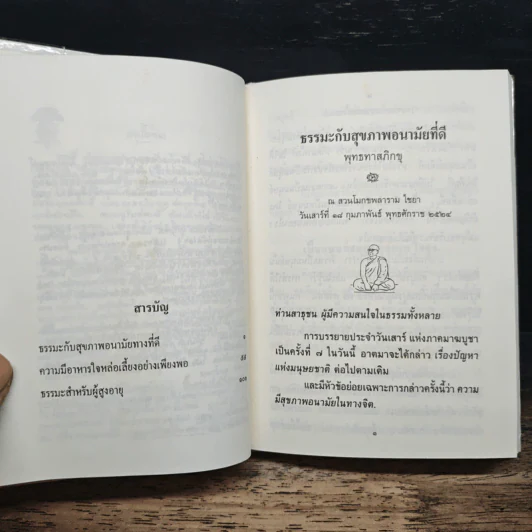 สารบัญ
ธรรมะกับสุขภาพอนามัยทางที่ดี ๑
ความมีอาหารใจหล่อเลี้ยงอย่างเพียงพอ
ธรรมะสำหรับผู้สูงอายุ
ธรรมะกับสุขภาพอนามัยที่ดี
พุทธทาสภิกขุ
ณ สวนโมกขพลาราม ไชยา
วันเสาร์ที่ ๑๘ กุมภาพันธ์ พุทธศักราช ๒๕๒๔
ท่านสาธุชน ผู้มีความสนใจในธรรมทั้งหลาย
การบรรยายประจำวันเสาร์ แห่งภาคมาฆบูชา
เป็นครั้งที่ ๗ ในวันนี้ อาตมาจะได้กล่าว เรื่องปัญหา
แห่งมนุษยชาติ ต่อไปตามเดิม
และมีหัวข้อย่อยเฉพาะการกล่าวครั้งนี้ว่า ความ
มีสุขภาพอนามัยในทางจิต.
๑